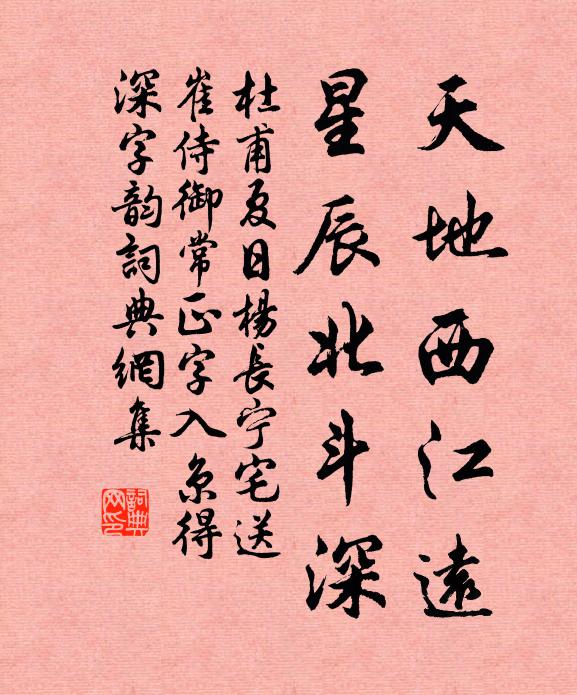 天地西江遠
星辰北斗深
杜甫夏日楊長宁宅送
崔侍御常正字入京得
深字韵詞典網集
詞典网印